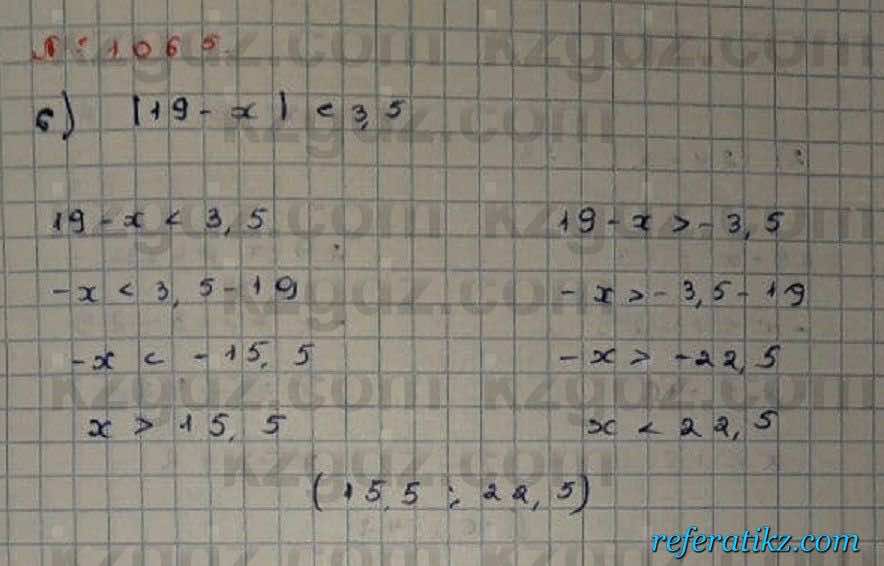 № 1065.
б) |19 - x| < 3,5
19 - x < 3,5
-x < 3,5 - 19
-x < -15,5
x > 15,5
19 - x > - 3,5
-x > - 3,5 - 19
-x > -22,5
x < 22,5
(15,5 ; 22,5)
kzgdz.com
referatikz.com